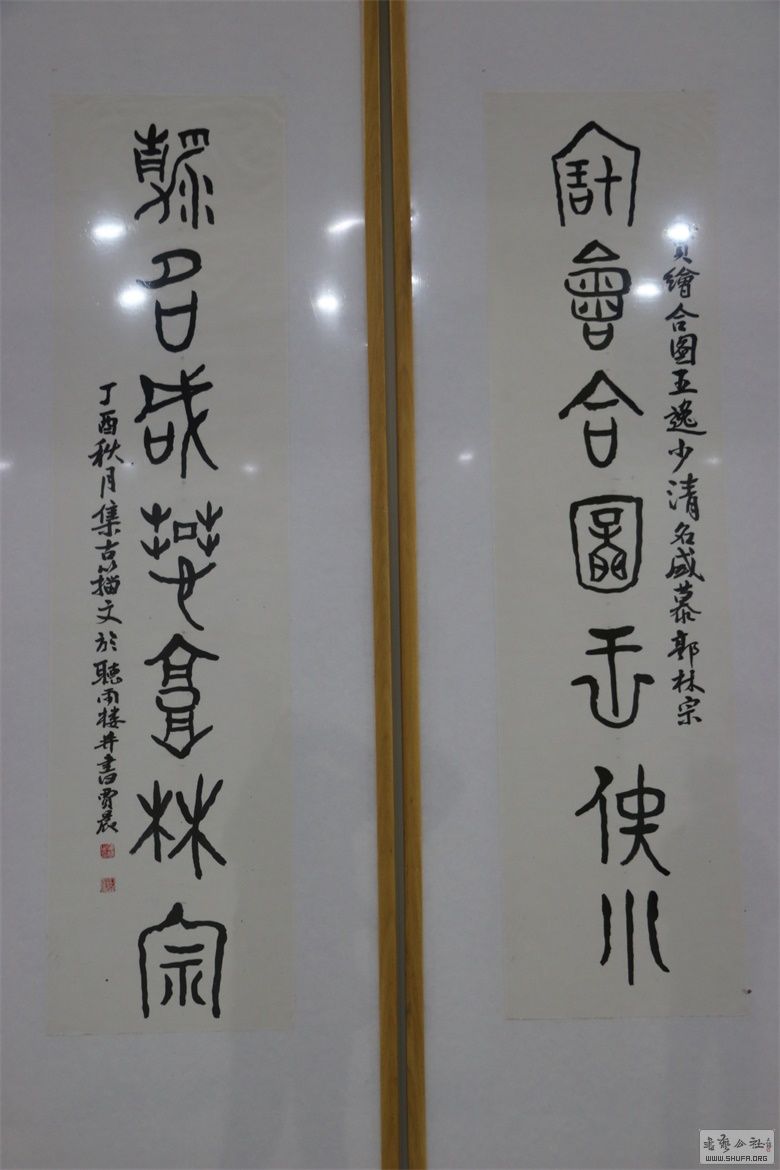 會合圖王佚少
繪合圖王逸少清名咸慕郭林宗
名咸𦱤林宗
丁酉秋月集古籀文於聽雨楼并書賈晨
書藝公社
WWW.SHUFA.ORG